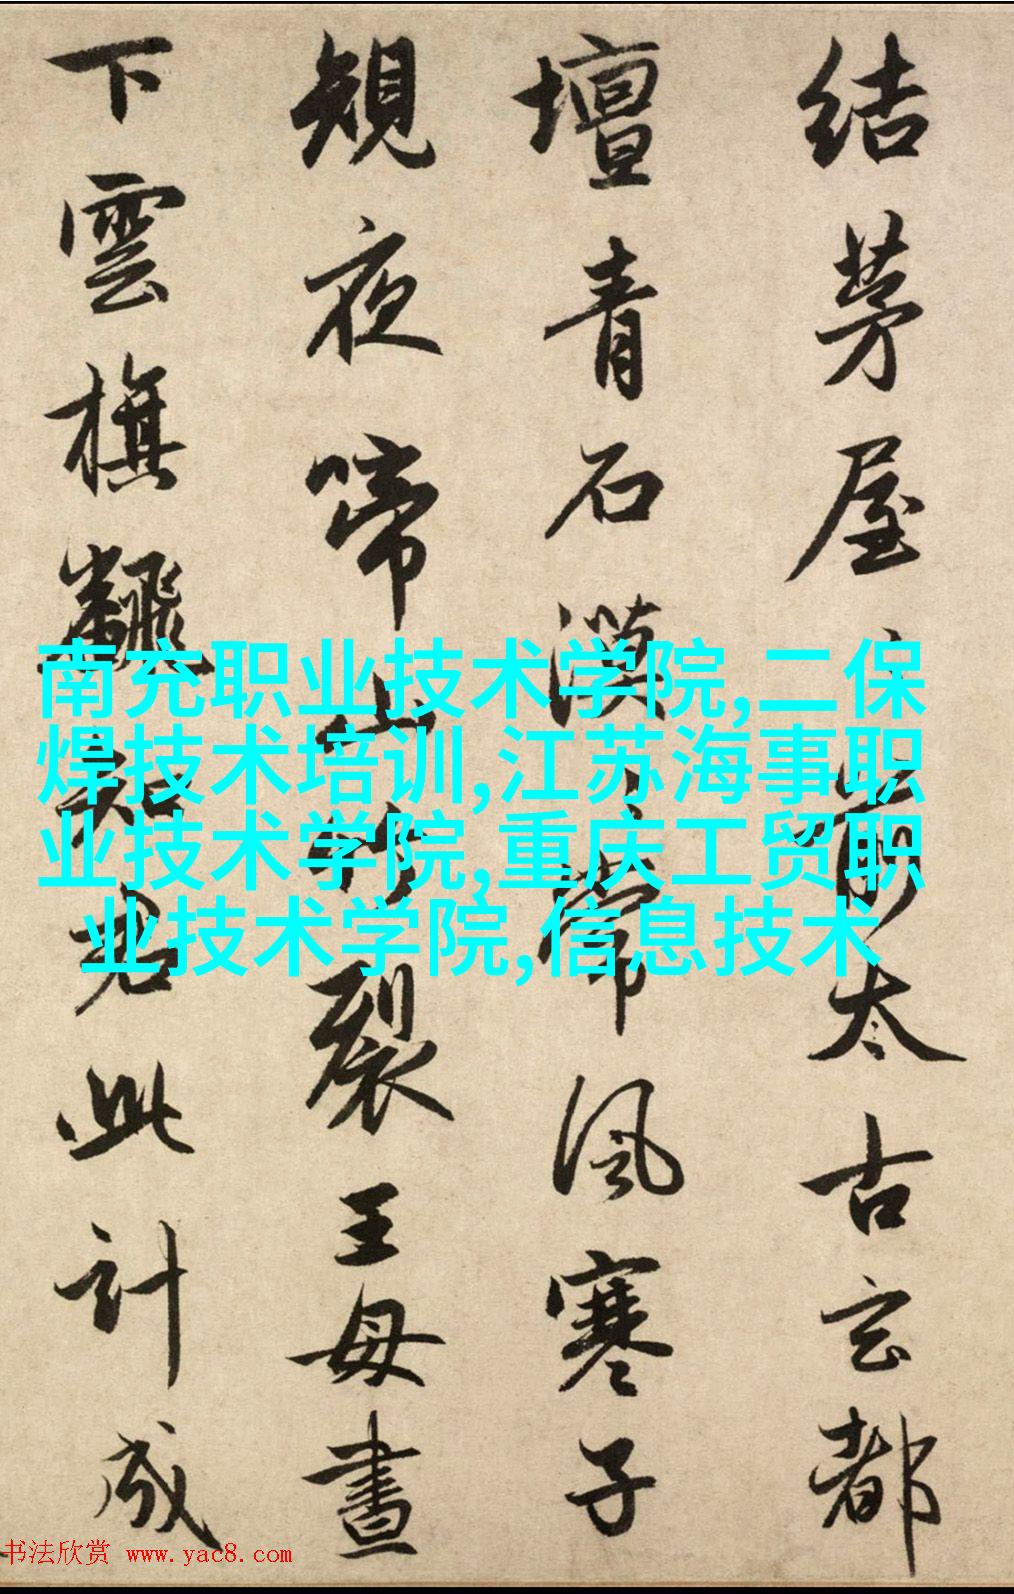 結茅屋〻前太古玄都
壇青石漠〻常風寒子
規夜啼山竹裂王母晝
下雲旗飜知君此計成
南充职业技术学院,二保
焊技术培训,江苏海事职
业技术学院,重庆工贸职
业技术学院,信息技术
书法欣赏 www.yac8.com